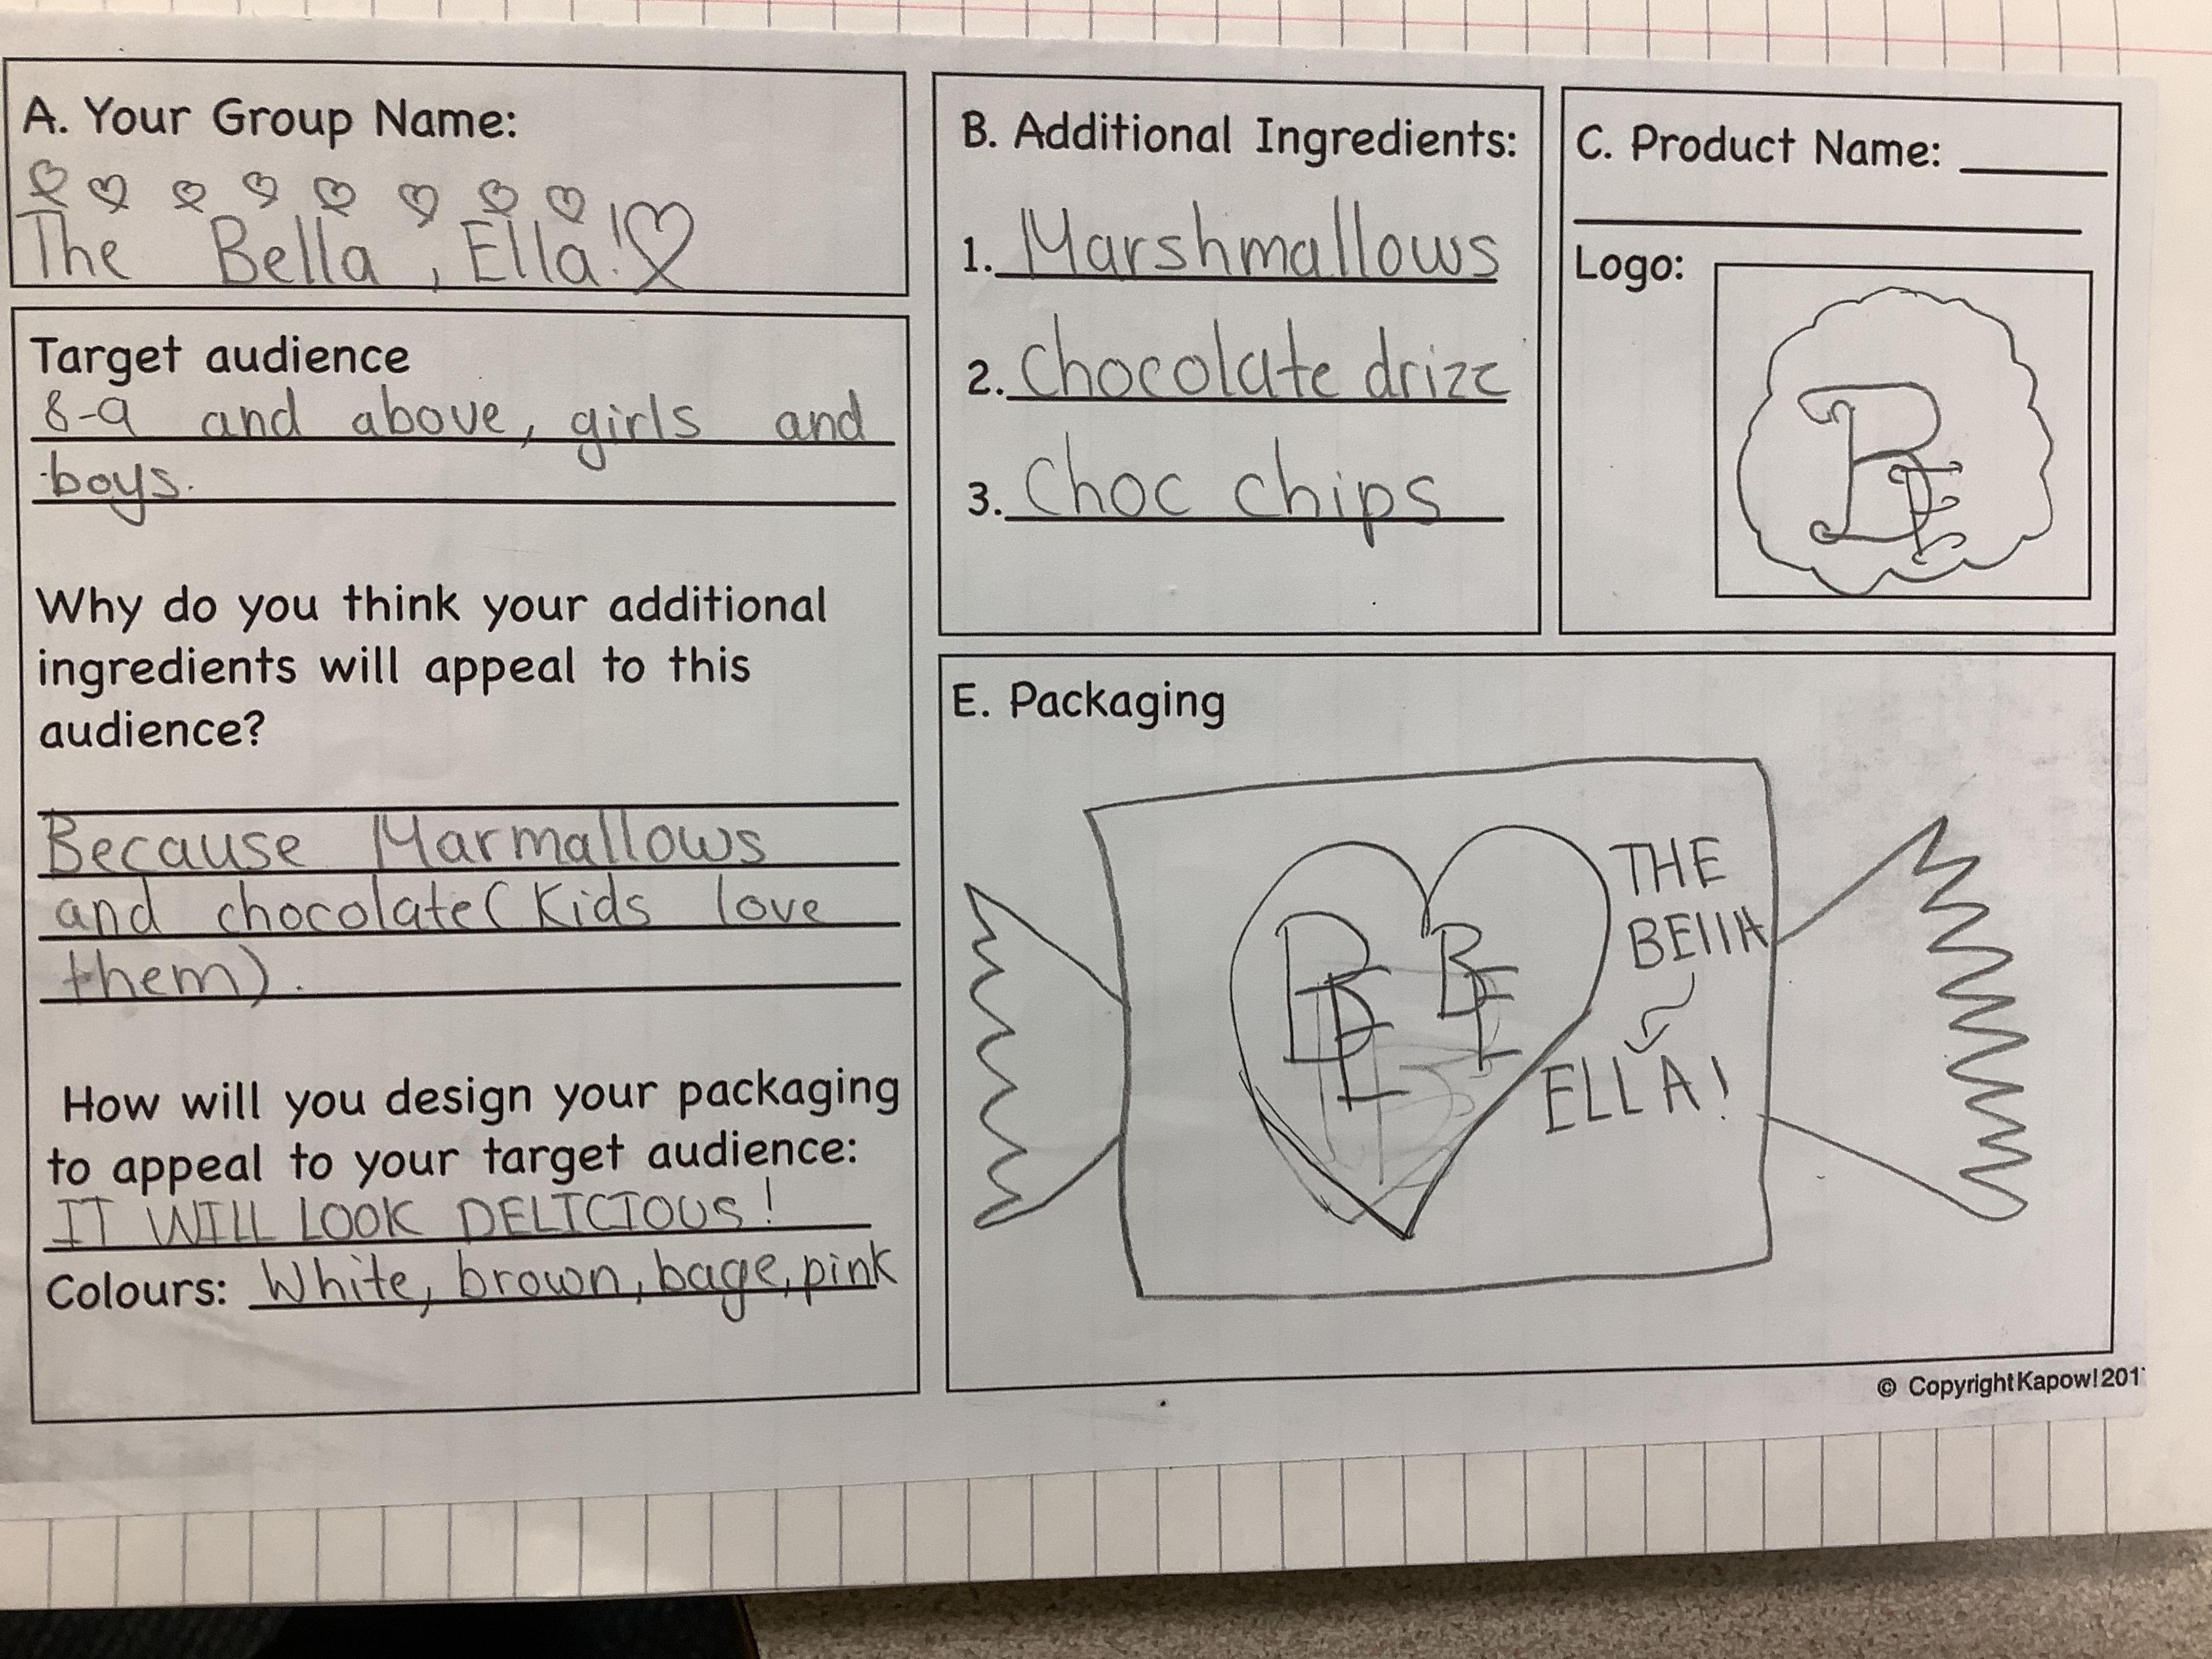 A. Your Group Name:
The Bella, Ella!
Target audience
8-9 and above, girls and
boys.
Why do you think your additional
ingredients will appeal to this
audience?
Because Marmallows
and chocolate (Kids love
them).
How will you design your packaging
to appeal to your target audience:
IT WILL LOOK DELICIOUS!
Colours: White, brown, bage, pink
B. Additional Ingredients:
1. Marshmallows
2. Chocolate drizz
3. Choc chips
C. Product Name:
Logo:
BE
E. Packaging
BE BE
THE
BEllA
ELLA!
© Copyright Kapow! 201